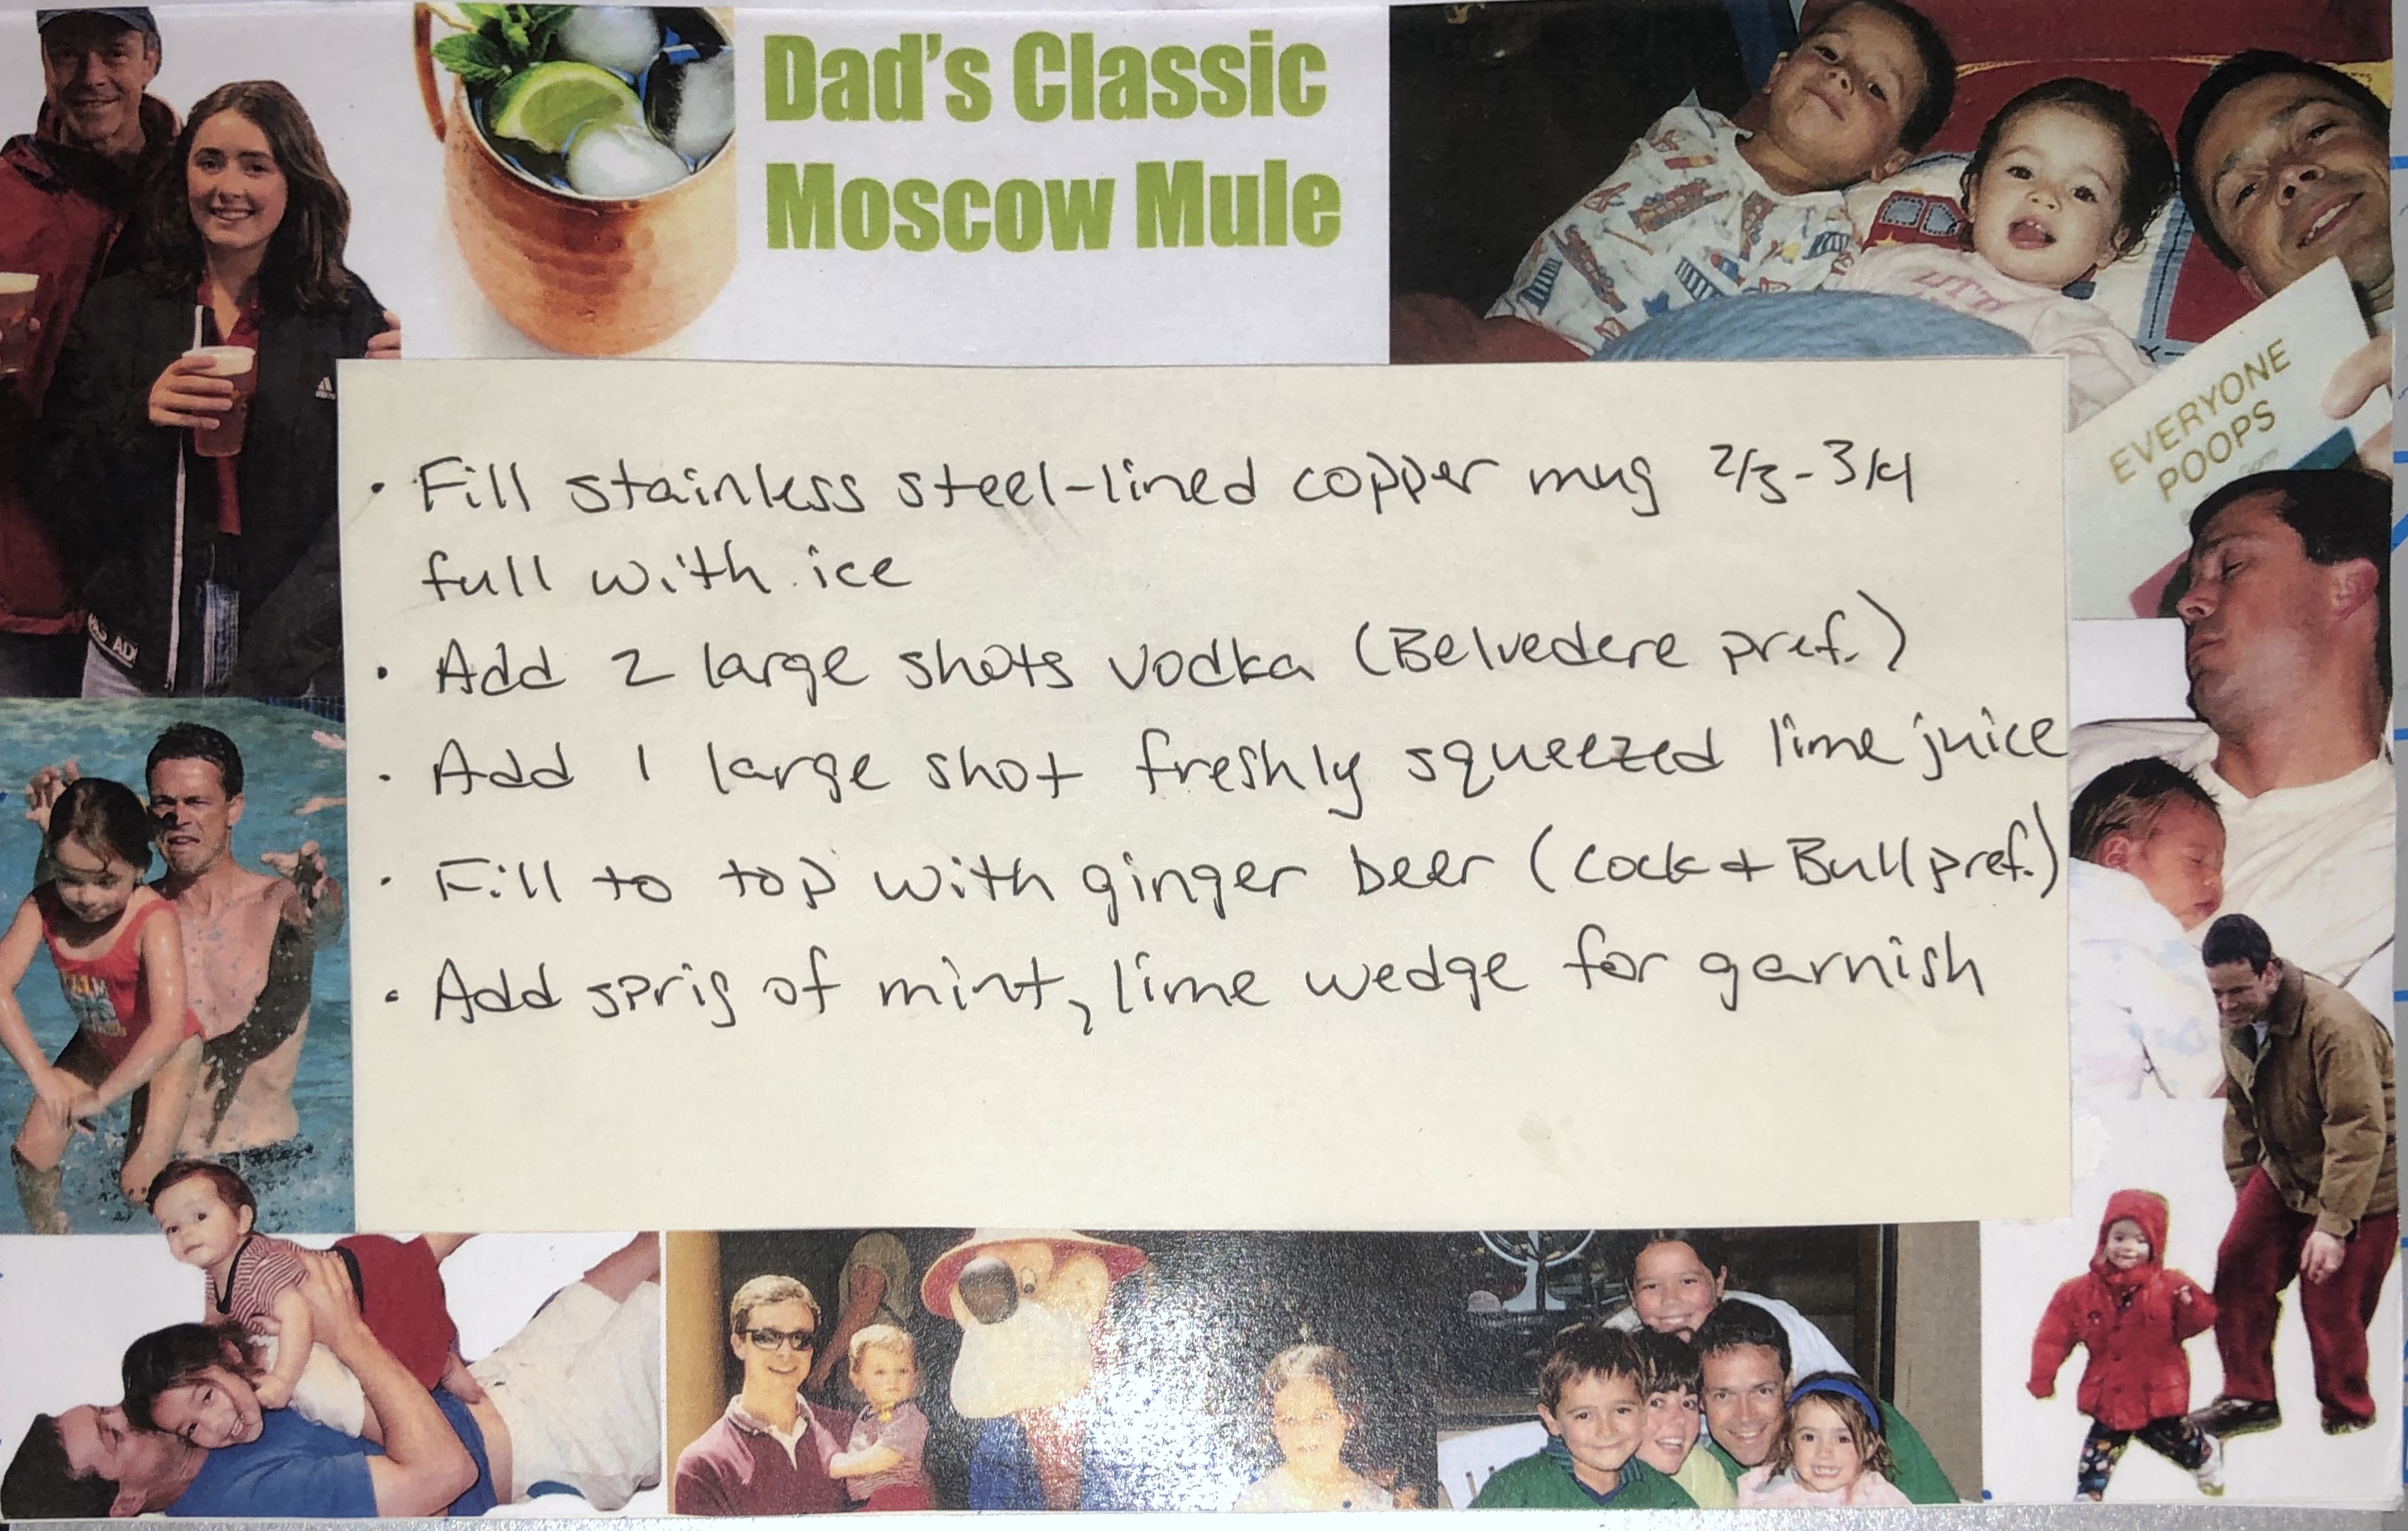 Dad's Classic
Moscow Mule
EVERYONE
POOPS
• Fill stainless steel-lined copper mug 2/3-3/4
full with ice
• Add 2 large shots vodka (Belvedere pref.)
• Add 1 large shot freshly squeezed lime juice
• Fill to top with ginger beer (Cock + Bull pref.)
• Add sprig of mint, lime wedge for garnish